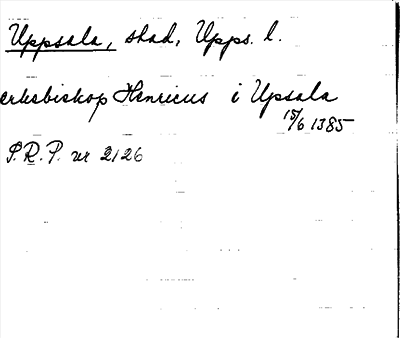 Uppsala, stad, Upps. l.
erkebiskop Henricus i Upsala
15/6 1385
S.R.P. nr 2126